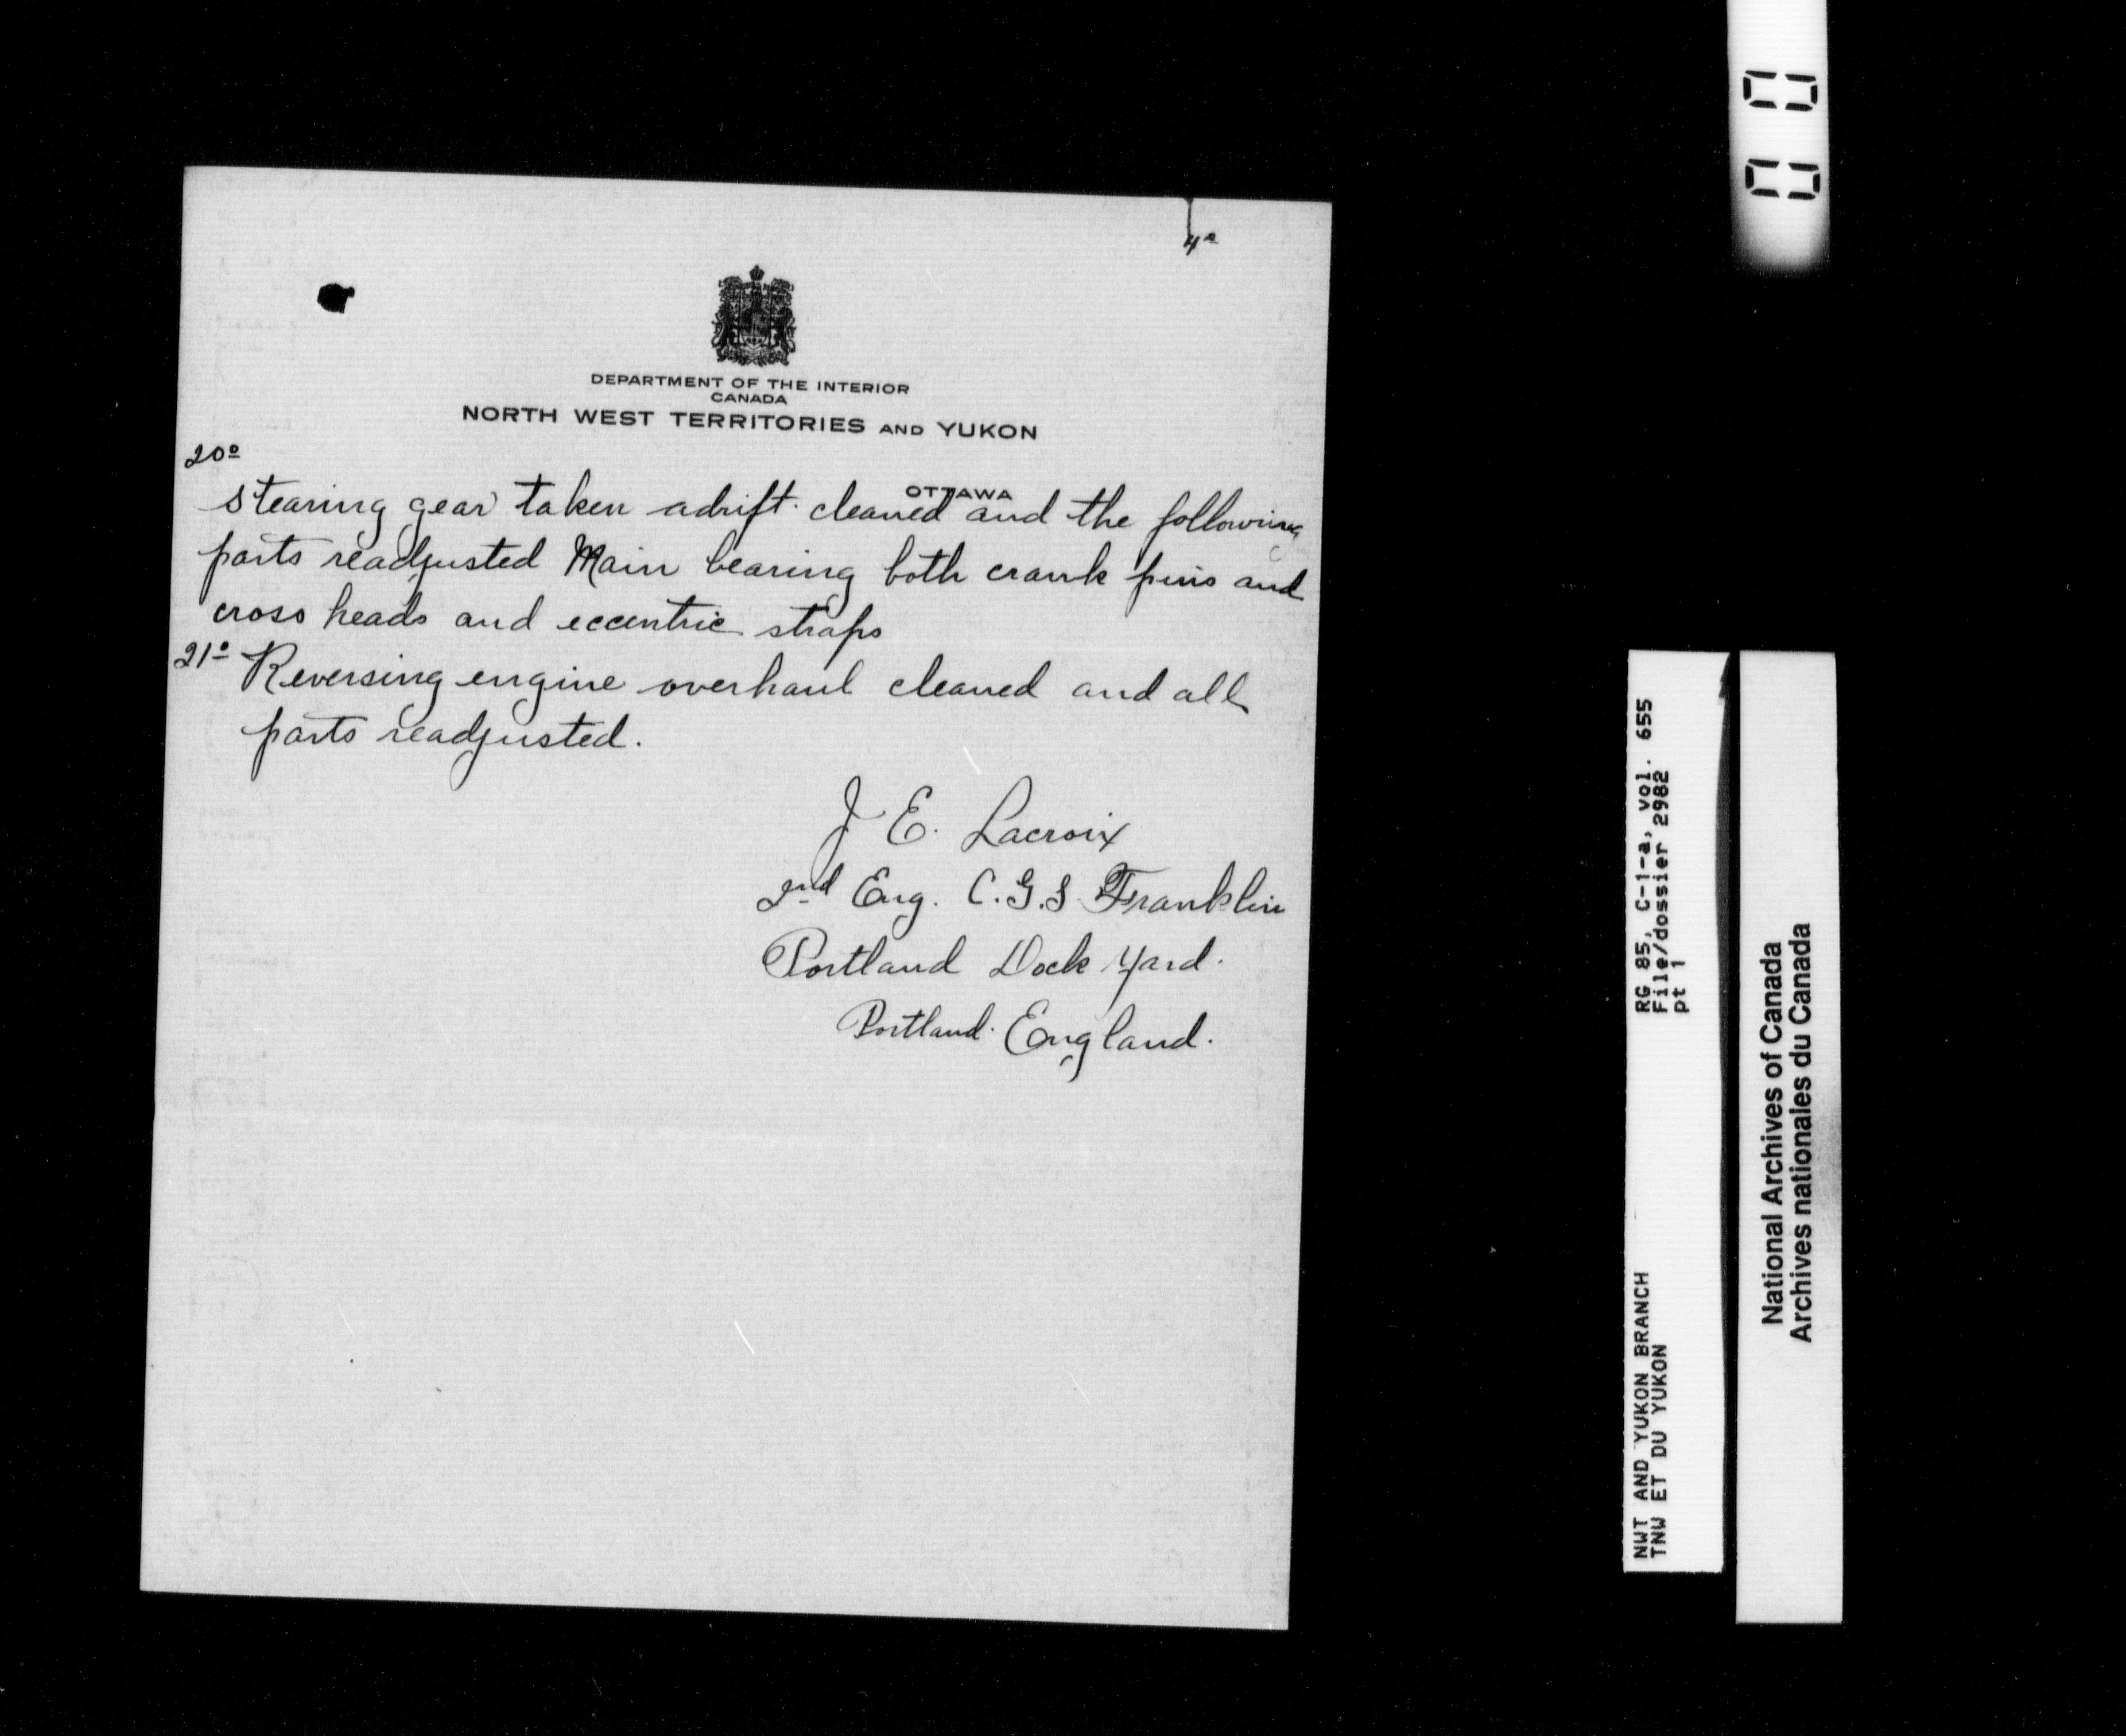 4º
DEPARTMENT OF THE INTERIOR
CANADA
NORTH WEST TERRITORIES AND YUKON
OTTAWA
20º
stearing gear taken adrift. cleaned and the following
parts readjusted Main bearing both crank pins and
cross heads and eccentric straps
21º Reversing engine overhaul cleaned and all
parts readjusted.
J E. Lacroix
2nd Eng. C.G.S Franklin
Portland Dock Yard.
Portland. England.
RG 85, C-1-a, vol. 655
File/dossier 2982
pt 1
NWT AND YUKON BRANCH
TNW ET DU YUKON
National Archives of Canada
Archives nationales du Canada